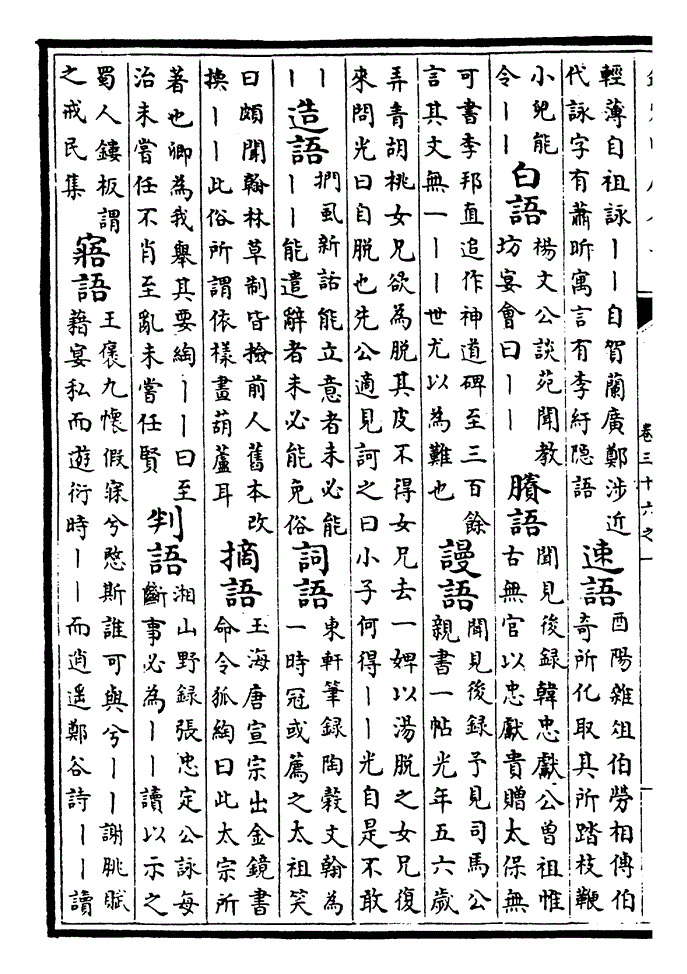 輕薄自祖詠丨丨自賀蘭廣鄭涉近
代詠字有蕭昕寓言有李紓隠語
速語
酉陽雜俎伯勞相傳伯
奇所化取其所踏枝鞭
小兒能
令丨丨
白語
楊文公談苑聞教
坊宴會曰丨丨
賸語
聞見後録韓忠獻公曽祖惟
古無官以忠獻貴贈太保無
可書李邦直追作神道碑至三百餘
言其文無一丨丨世尤以為難也
謾語
聞見後録予見司馬公
親書一帖光年五六歲
弄青胡桃女兄欲為脱其皮不得女兄去一婢以湯脱之女兄復
來問光曰自脱也先公適見訶之曰小子何得丨丨光自是不敢
丨
丨
造語
捫虱新話能立意者未必能
丨丨能遣辭者未必能免俗
詞語
東軒筆録陶榖文翰為
一時冠或薦之太祖笑
曰頗聞翰林草制皆撿前人舊本改
換丨丨此俗所謂依様畫葫蘆耳
摘語
玉海唐宣宗出金鏡書
命令狐綯曰此太宗所
著也卿為我舉其要綯丨丨曰至
治未嘗任不肖至亂未嘗任賢
判語
湘山野録張忠定公詠每
斷事必為丨丨讀以示之
蜀人鏤板謂
之戒民集
寤語
王褒九懷假寐兮愍斯誰可與兮丨丨謝朓賦
藉宴私而遊衍時丨丨而逍遥鄭谷詩丨丨讀
卷三十六之一